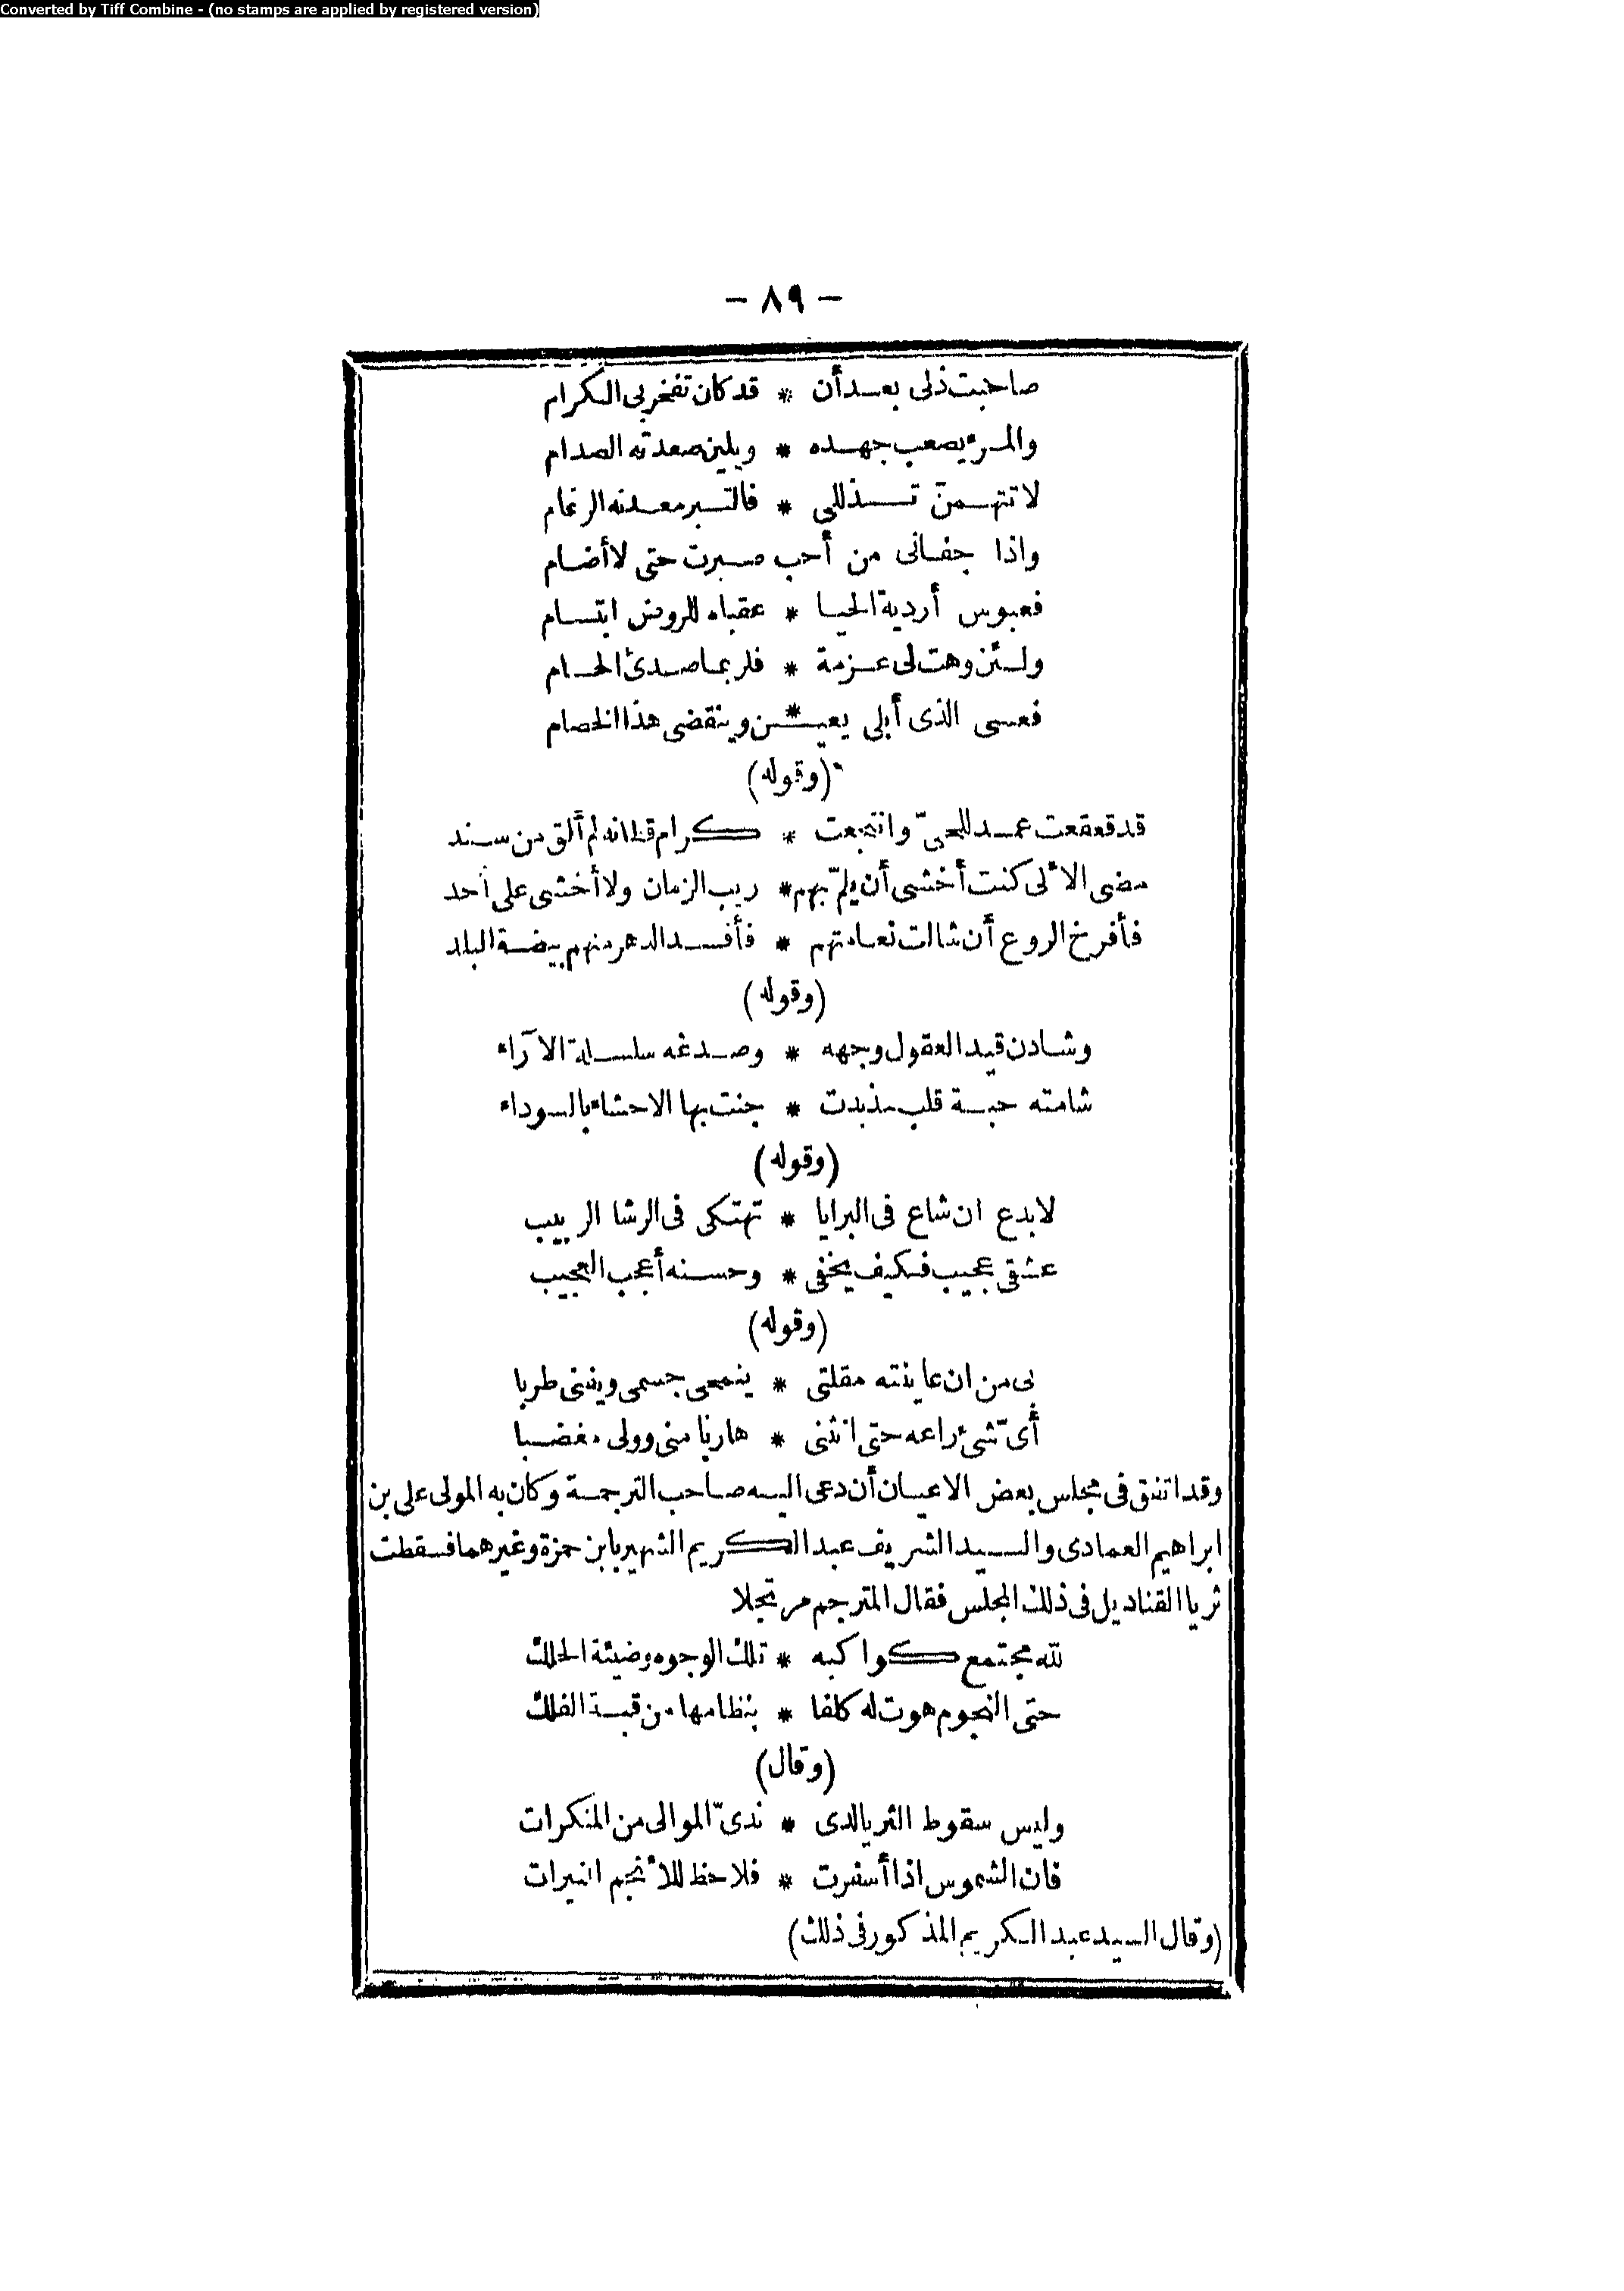 Converted by Tiff Combine - (no stamps are applied by registered version)
- ٨٩ -
صاحبت ذلى بعد أن * قد كان تفخر بى الكرام
والمرء يصعب جهده * ويلين صعدته الصدام
لا تتهمن تذللى * فالتبر معدنه الرغام
واذا جفانى من أحب صبرت حتى لا أضام
فعبوس أردية الحيا * عقباه للروض ابتسام
ولئن وهت لى عزمة * فلربما صدئ الحسام
فعسى الذى أبلى يعيـ * ـن وينقضى هذا الخصام
(وقوله)
قد قعقعت عمد للحىّ وانتجعت * كرام قطانه لم ألق من سند
مضى الألى كنت أخشى أن يلمّ بهم * ريب الزمان ولا أخشى على أحد
فأفرخ الروع أن شالت نعامتهم * فأفسد الدهر منهم بيضة البلد
(وقوله)
وشادن قيد العقول وجهه * وصدغه سلسلة الآراء
شامته حبة قلب مذبدت * جنت بها الاحشاء بالسوداء
(وقوله)
لا بدع ان شاع فى البرايا * تهتكى فى الرشا الربيب
عشقى عجيب فكيف يخفى * وحسنه أعجب العجيب
(وقوله)
بى من ان عاينته مقلتى * ينمحى جسمى ويفنى طربا
أىّ شئ راعه حتى انثنى * هاربا منى وولى مغضبا
وقد اتفق فى مجلس بعض الاعيان أن دعى اليه صاحب الترجمة وكان به المولى على بن
ابراهيم العمادى والسيد الشريف عبد الكريم الشهير بابن حمزة وغيرهما فسقطت
ثريا القناديل فى ذلك المجلس فقال المترجم مرتجلا
لله مجتمع كواكبه * تلك الوجوه وضيئة الحلك
حتى النجوم هوت له كلفا * بنظامها من قبة الفلك
(وقال)
وليس سقوط الثريا لدى * ندىّ الموالى من المنكرات
فان الشموس اذا أسفرت * فلا حظ للأنجم النيرات
(وقال السيد عبد الكريم المذكور فى ذلك)